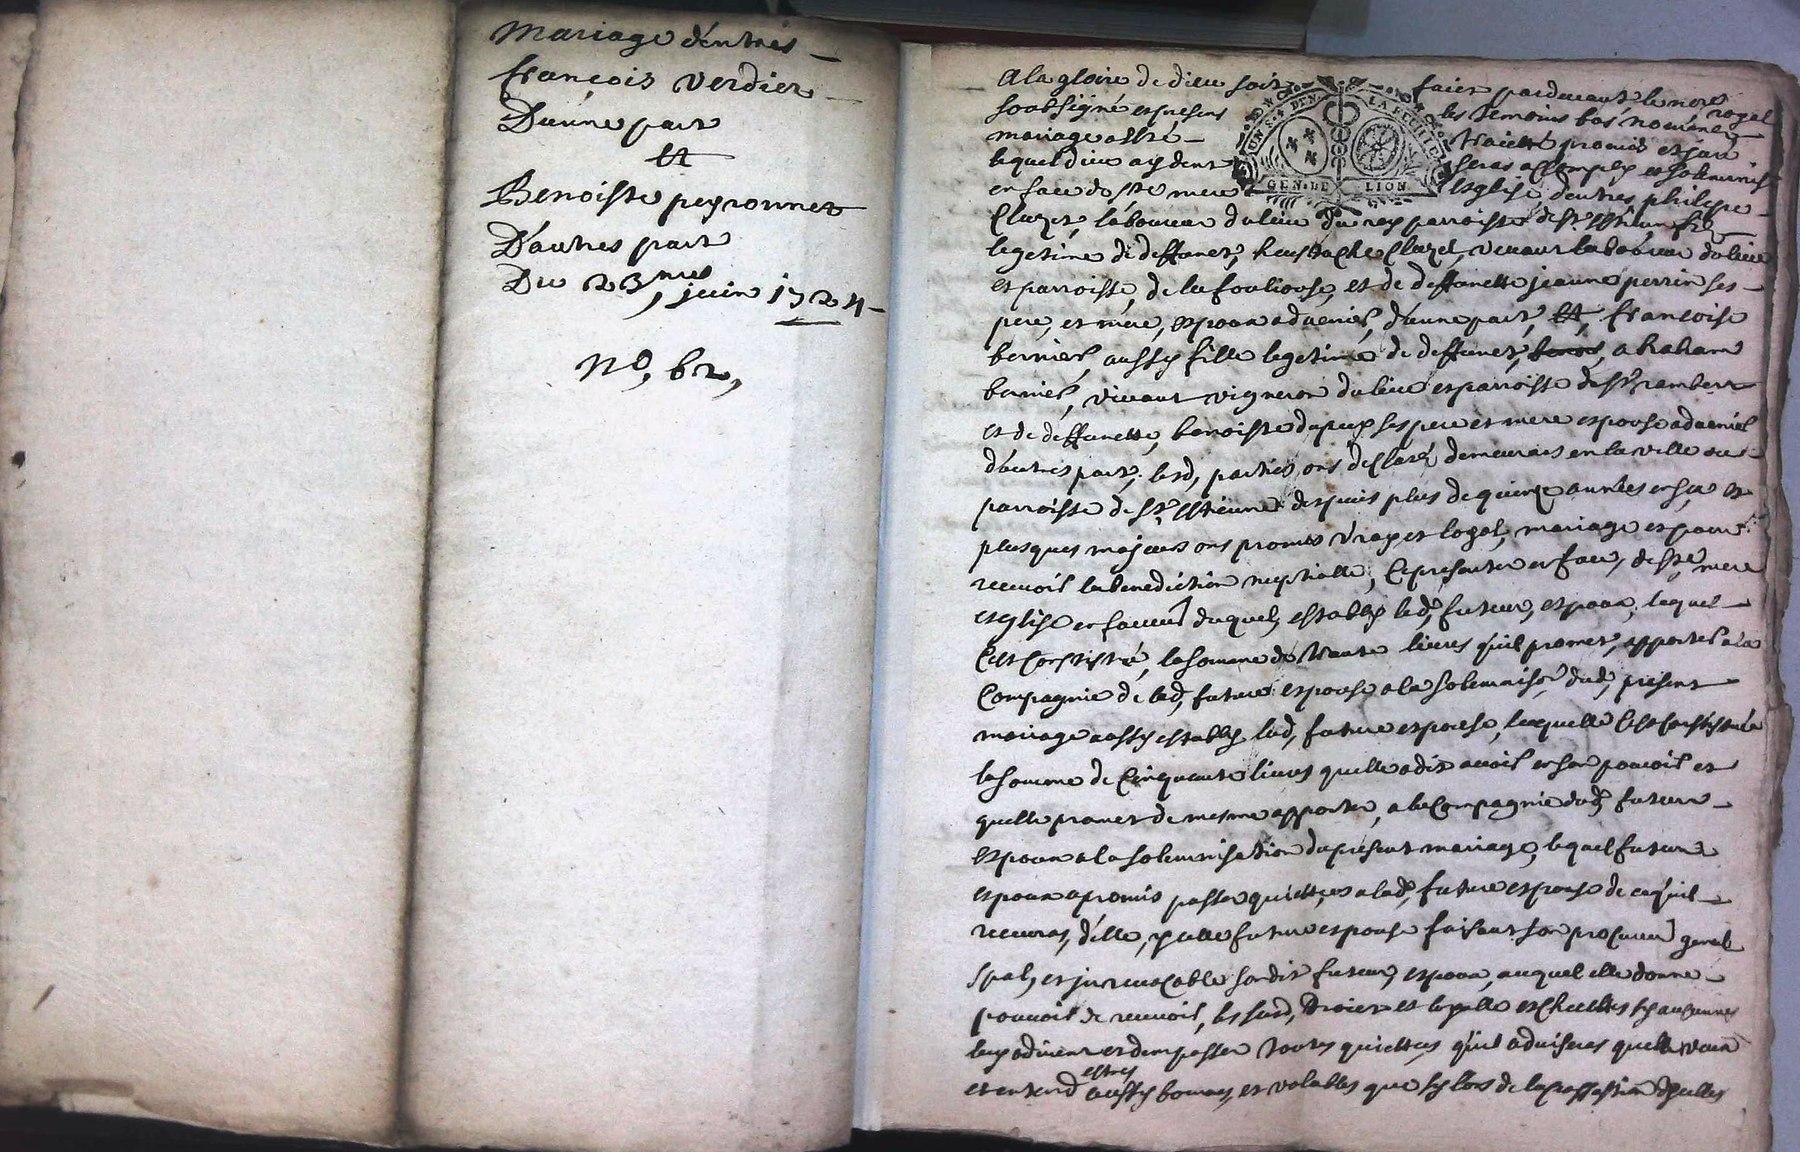 Mariage d'entres
françois verdier
D'aune part
Et
Benoiste peyronnet
D'autres part
Du 23me juin 1724
No, 62,
A la gloire de dieu soit faict pardevant le nore royal
soubsigné et presens les temoins bas nommés
mariage a esté traicté promis et juré
lequel dieu aydent seras accomply et solemnisé
en face de ste mere Esglise d'entres philipe
UN S. 4 DEN. LA FEUILLE
GEN. DE LION
Cluzel, laboureur du lieu du may parroiste de st Estienne fils
legetime de deffunct, heustache Cluzel, vivant laboureur du lieu
et parroisse, de la fouliouse, et de deffunette jeanne perrin ses
pere, et mere, espoux advenir, d'aune part, Et, francoise
bernier, aussy fille legetime de deffunct, abraham
bernier, vivant vigneron du lieu et parroisse de st rambert
et de deffunette, benoiste dupuy ses pere et mere espouse advenir
d'autres part, lesd, parties ont desclaré demeurer en la ville et
parroisse de st Estienne despuis plus de quinze années en ça et
plusques majeurs ont promis vray et loyal, mariage et pour
recevoir la benediction nuptialle, Ce presenter en face, de ste mere
esglise en faveur duquel, estably led, futeur, espoux, lequel
C'est Constitué, la somme de trante livres qu'il promet, apporter a la
Compagnie de lad, future espouse a la solemnison dud, present
mariage aussy estably lad, future espouse, laquelle C'est constituée
la somme de Cinquante livres quelle a dit avoir en son pouvoir et
quelle promet de mesme apporter, a la Compagnie dud futeur
espoux a la solemnisation du present mariage, lequel futeur
espoux a promis passer quittces a lad, future espouse de ce qu'il
recevras, d'elle, ycelle future espouse faisant son procureur genal
spal, et jrrevocable sondit futeur, espoux, auquel elle donne
pouvoir de recevoir, les susd, droits et
et d'en passer toutes quittces qu'il adviseras quelle veux
et entend estres aussy bonnes, et valables que sy lors de la passation d'ycelles